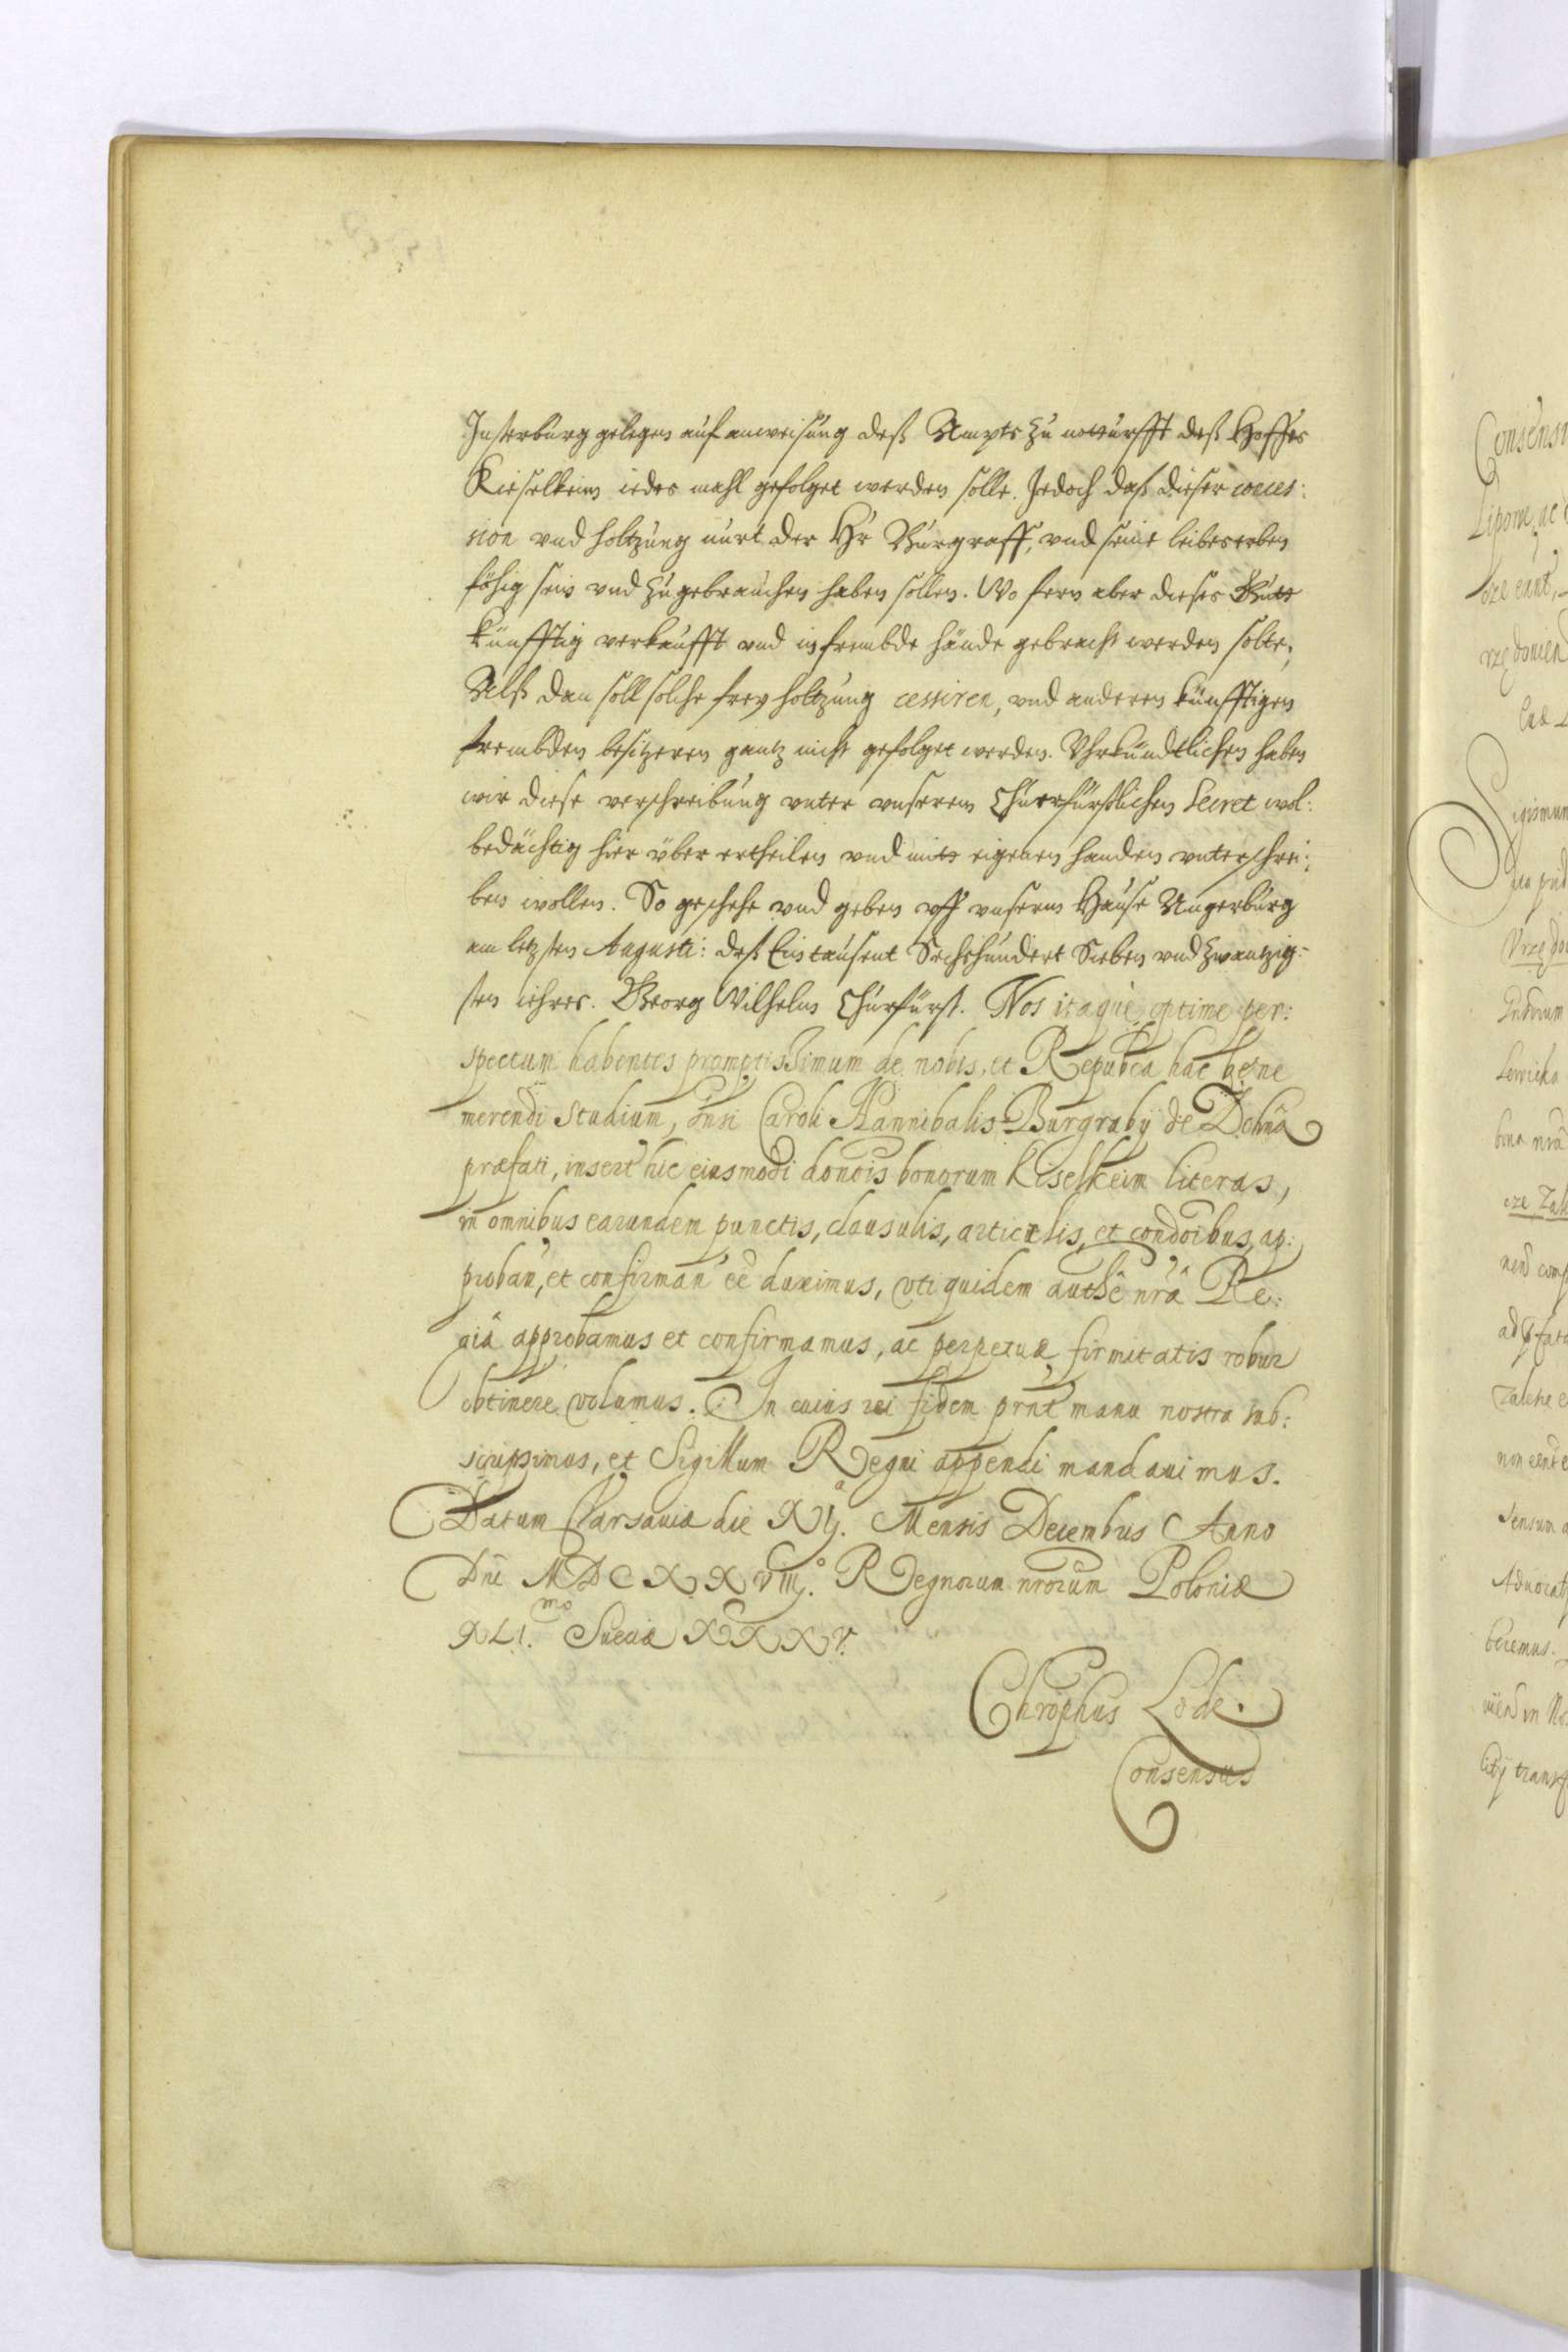 Insterburg gelegen auf anweisung deß Ampts zu notturfft deß Hoffes
Kieselkeim iedes mahl gefolget werden solle. Jedoch daß dieser conces:
sion vnd holtzung nurt der Hr Burgraff, vnd seine leibeserben
fähig sein vnd zugebrauchen haben sollen. Wo fern aber dieses Gutt
künfftig verkaufft vnd in frembde hände gebracht werden solte,
Alß dan soll solche frey holtzung cessiren, vnd anderen künfftigen
frembden besitzeren gantz nicht gefolget werden. Vhrkundtlichen haben
wir diese verschreibung vnter vnserem Churfürstlichen Secret wol:
bedächtig hier über ertheilen vnd mitt eigenen handen vnterschrei:
ben wollen. So geschehe vnd geben vff vnserm Hause Angerburg
am letzsten Augusti: deß Eintausent Sechshundert Sieben vnd zwantzig:
sten iahres. Georg Wilhelm Churfürst. Nos itaque optime per:
spectum habentes promptissimum de nobis, et Republca hac bene
merendi studium, Gnsi Caroli Hannibalis Burgrabij de Dohna
præfati, insert hic eiusmodi donois bonorum Kiselkeim literas,
in omnibus earundem punctis, clausulis, articulis, et condoibus, ap:
proban, et confirman eê duximus, vti quidem authê nrâ Re:
giâ approbamus et confirmamus, ac perpetuæ firmitatis robur
obtinere volumus. In cuius rei fidem prnt manu nostra sub:
scripsimus, et Sigillum Regni appendi mandauimus.
Datum Varsauiæ die XIj.a Mensis Decembris Anno
Dni MDCXXVIIj.o Regnorum nrorum Poloniæ
XLI.mo Sueciæ XXXV.
Chrophus Lode.
Consensus